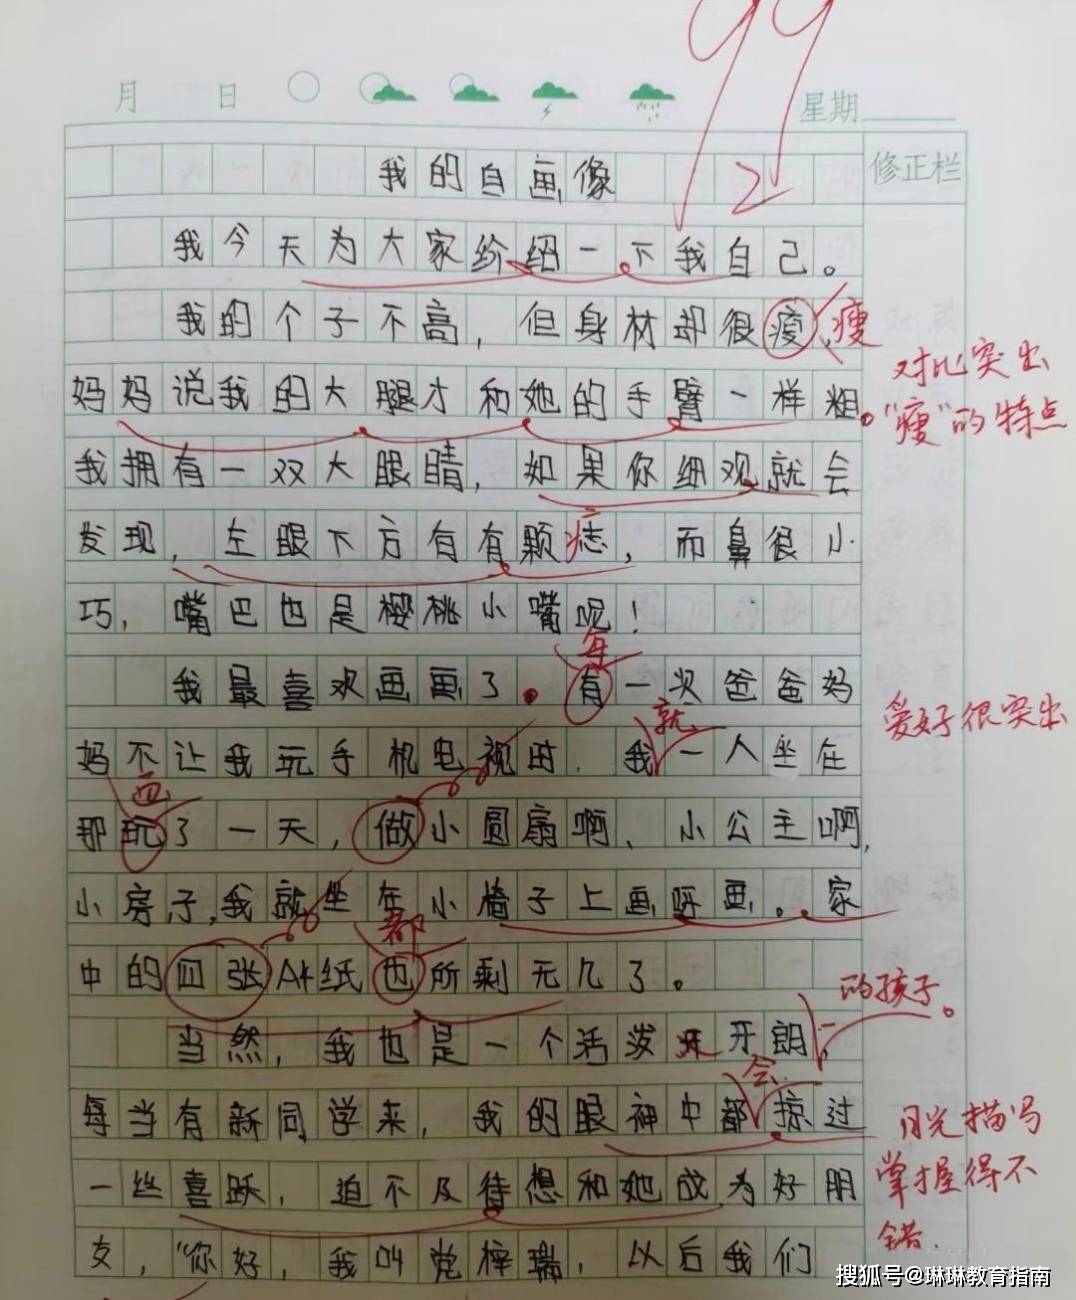 99
月 日 星期
修正栏
我的自画像 2
我今天为大家给绍一下我自己。
我的个子不高，但身材却很瘦，瘦
对比突出
妈妈说我的大腿才和她的手臂一样粗。
"瘦"的特点
我拥有一双大眼睛，如果你细观就会
发现，左眼下方有有颗痣，而鼻很小
巧，嘴巴也是樱桃小嘴呢！
每
我最喜欢画画了。有一次爸爸妈
爱好很突出
就
妈不让我玩手机电视时，我一人坐在
画
那玩了一天，做小圆扇啊、小公主啊，
小房子，我就坐在小椅子上画呀画。家
都
中的四张A4纸也所剩无几了。
的孩子。
当然，我也是一个活泼开朗，
会
每当有新同学来，我的眼神中都掠过
目光描写
一丝喜跃，迫不及待想和她成为好朋
掌握得不
友，"你好，我叫党梓瑞，以后我们
错.
搜狐号@琳琳教育指南